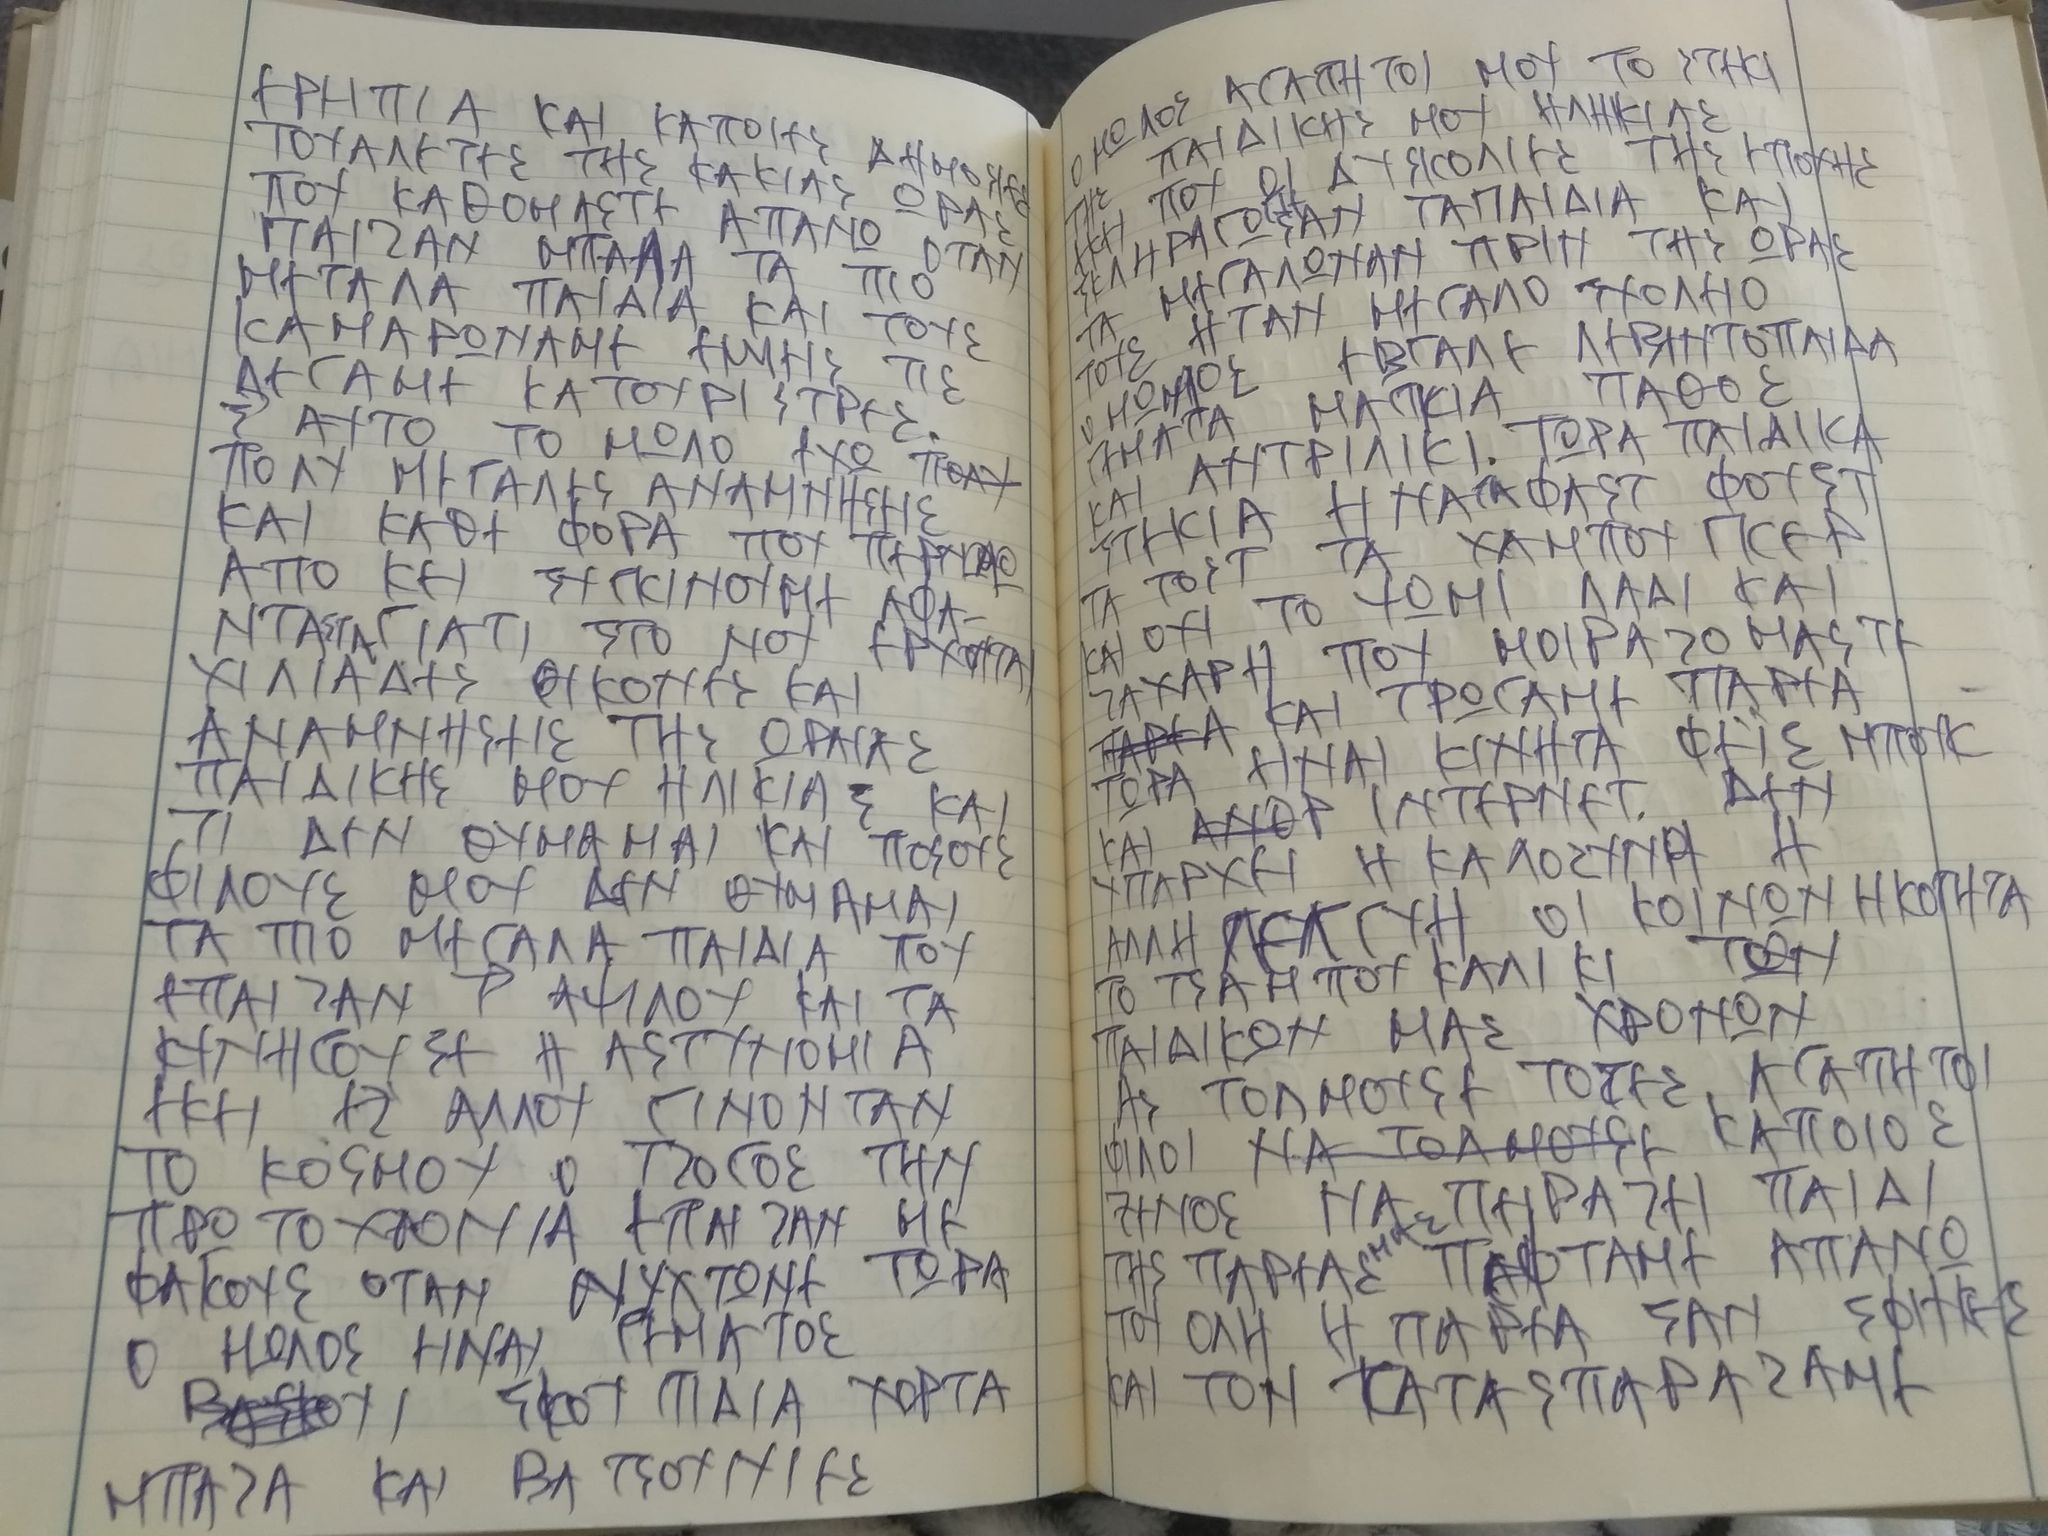 ΕΡΗΠΙΑ ΚΑΙ ΚΑΠΟΙΕΣ ΔΗΜΟΣΙΕΣ
ΤΟΥΑΛΕΤΕΣ ΤΗΣ ΚΑΚΙΑΣ ΩΡΑΣ
ΠΟΥ ΚΑΘΟΜΑΣΤΕ ΑΠΑΝΩ ΟΤΑΝ
ΠΑΙΖΑΝ ΜΠΑΛΑ ΤΑ ΠΙΟ
ΜΕΓΑΛΑ ΠΑΙΔΙΑ ΚΑΙ ΤΟΥΣ
ΚΑΜΑΡΩΝΑΜΕ ΕΜΗΣ ΤΙΣ
ΛΕΓΑΜΕ ΚΑΤΟΥΡΙΣΤΡΕΣ.
Σ ΑΥΤΟ ΤΟ ΜΩΛΟ ΕΧΩ ΠΟΛΥ
ΠΟΛΥ ΜΕΓΑΛΕΣ ΑΝΑΜΝΗΣΗΣ
ΚΑΙ ΚΑΘΕ ΦΟΡΑ ΠΟΥ ΠΕΡΝΑΩ
ΑΠΟ ΚΕΙ ΣΥΓΚΙΝΟΥΜΕ ΑΦΑ-
ΝΤΑΣΤΑ ΓΙΑΤΙ ΣΤΟ ΝΟΥ ΕΡΧΟΝΤΑΙ
ΧΙΛΙΑΔΕΣ ΗΚΟΝΕΣ ΚΑΙ
ΑΝΑΜΝΗΣΗΣ ΤΗΣ ΩΡΑΙΑΣ
ΠΑΙΔΙΚΗΣ ΜΟΥ ΗΛΙΚΙΑΣ ΚΑΙ
ΤΙ ΔΕΝ ΘΥΜΑΜΑΙ ΚΑΙ ΠΟΣΟΥΣ
ΦΙΛΟΥΣ ΜΟΥ ΔΕΝ ΘΥΜΑΜΑΙ
ΤΑ ΠΙΟ ΜΕΓΑΛΑ ΠΑΙΔΙΑ ΠΟΥ
ΕΠΑΙΖΑΝ ΚΑΙ ΤΑ
ΚΗΝΗΓΟΥΣΕ Η ΑΣΤΥΝΟΜΙΑ
ΕΚΗ ΕΞ ΑΛΛΟΥ ΓΙΝΟΝΤΑΝ
ΤΟ ΚΟΣΜΟΥ Ο ΤΖΟΓΟΣ ΤΗΝ
ΠΡΩΤΟΧΡΟΝΙΑ ΕΠΑΙΖΑΝ ΜΕ
ΦΑΚΟΥΣ ΟΤΑΝ ΝΥΧΤΩΝΕ ΤΩΡΑ
Ο ΜΩΛΟΣ ΗΝΑΙ ΓΕΜΑΤΟΣ
ΣΚΟΥΠΙΔΙΑ ΧΟΡΤΑ
ΜΠΑΖΑ ΚΑΙ ΒΑΤΣΟΥΝΙΕΣ
Ο ΜΩΛΟΣ ΑΓΑΠΗΤΟΙ ΜΟΥ ΤΟ ΣΤΕΚΙ
ΤΗΣ ΠΑΙΔΙΚΗΣ ΜΟΥ ΗΛΗΚΙΑΣ
ΕΚΗ ΠΟΥ ΟΙ ΔΥΣΚΟΛΙΕΣ ΤΗΣ ΕΠΟΧΗΣ
ΣΚΛΗΡΑΓΩΣΑΝ ΤΑ ΠΑΙΔΙΑ ΚΑΙ
ΤΑ ΜΕΓΑΛΩΝΑΝ ΠΡΙΝ ΤΗΣ ΩΡΑΣ
ΤΟΥΣ ΗΤΑΝ ΜΕΓΑΛΟ ΣΧΟΛΗΟ
Ο ΜΩΛΟΣ ΕΒΓΑΛΕ ΛΕΒΕΝΤΟΠΑΙΔΑ
ΓΕΜΑΤΑ ΜΑΓΚΙΑ ΠΑΘΟΣ
ΚΑΙ ΑΝΤΡΙΛΙΚΙ. ΤΩΡΑ ΠΑΙΔΙΚΑ
ΣΤΕΚΙΑ ΗΝΑ ΤΑ ΦΑΣΤ ΦΟΥΣΤ
ΤΑ ΤΟΣΤ ΤΑ ΧΑΜΠΟΥΓΚΕΡ
ΚΑΙ ΟΧΙ ΤΟ ΨΩΜΙ ΛΑΔΙ ΚΑΙ
ΖΑΧΑΡΗ ΠΟΥ ΜΟΙΡΑΖΟΜΑΣΤΕ
ΠΑΡΕΑ ΚΑΙ ΤΡΩΓΑΜΕ ΠΑΡΕΑ
ΤΩΡΑ ΗΝΑΙ ΚΙΝΗΤΑ ΦΕΙΣ ΜΠΟΥΚ
ΚΑΙ ΙΝΤΕΡΝΕΤ. ΔΕΝ
ΥΠΑΡΧΕΙ Η ΚΑΛΟΣΥΝΗ Η
ΑΛΛΗΛΕΓΓΥΗ ΟΙ ΚΟΙΝΩΝΗΚΟΤΗΤΑ
ΤΟ ΤΣΑΜΠΟΥΚΑΛΙΚΙ ΤΩΝ
ΠΑΙΔΙΚΩΝ ΜΑΣ ΧΡΟΝΩΝ
ΑΣ ΤΟΛΜΟΥΣΕ ΤΟΤΕΣ ΑΓΑΠΗΤΟΙ
ΦΙΛΟΙ ΝΑ ΤΟΛΜΟΥΣΕ ΚΑΠΟΙΟΣ
ΞΕΝΟΣ ΝΑ ΠΗΡΑΖΗ ΠΑΙΔΙ
ΤΗΣ ΠΑΡΕΑΣ ΜΑΣ ΠΕΦΤΑΜΕ ΑΠΑΝΩ
ΤΟΥ ΟΛΗ Η ΠΑΡΕΑ ΣΑΝ ΣΦΗΚΕΣ
ΚΑΙ ΤΟΝ ΚΑΤΑΣΠΑΡΑΖΑΜΕ